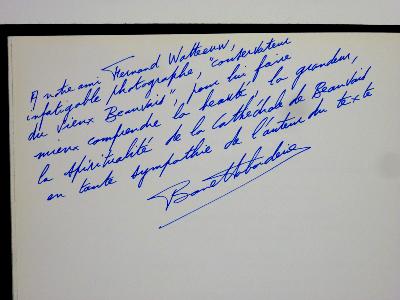 A notre ami Fernand Watteeuw,
infatigable photographe, "conservateur
du Vieux Beauvais", pour lui faire
mieux comprendre la beauté, la grandeur,
la spiritualité de la Cathédrale de Beauvais
en toute sympathie de l'auteur du texte